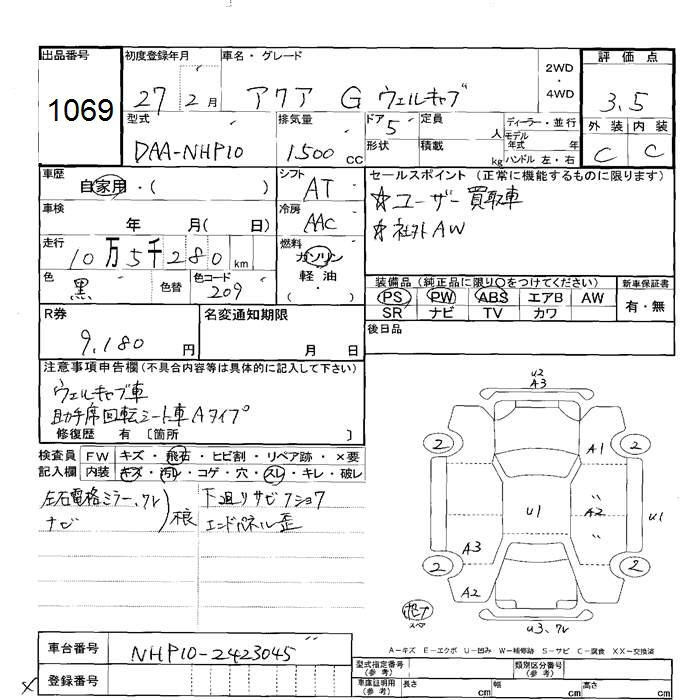 出品番号 初度登録年月 車名・グレード 2WD ・ 4WD 評価点
1069 27 2月 アクア G ウェルキャブ 3.5
型式 排気量 ドア 5 定員 人 ディーラー・並行 外装 内装
DAA-NHP10 1500 cc 形状 積載 kg モデル年式 年 ハンドル 左・右 C C
車歴 自家用・( ) シフト AT セールスポイント (正常に機能するものに限ります)
☆ユーザー買取車
車検 年 月( 日) 冷房 AAC ☆社外AW
走行 10万5千280 km 燃料 ガソリン 軽油 ( ・ )
色 黒 色替 色コード 209
装備品(純正品に限り○をつけてください) 新車保証書
PS PW ABS エアB AW 有・無
SR ナビ TV カワ
R券 9,180 円 名変通知期限 月 日 後日品
注意事項申告欄(不具合内容等は具体的に記入して下さい)
ウェルキャブ車
助手席回転シート車Aタイプ
修復歴 有 〔箇所 〕
検査員 FW キズ・飛石・ヒビ割・リペア跡・×要
記入欄 内装 キズ・汚レ・コゲ・穴・スレ・キレ・破レ
左右電格ミラー、ワレ 下廻りサビフショク
ナビ 痕 エンドパネル歪
u2
A3
2 2
A1
u1 A2 u1
A3
2 2
A2
u3、ワレ
スペア
A-キズ E-エクボ U-凹み W-補修跡 S-サビ C-腐食 XX-交換済
車台番号 NHP10-2423045
登録番号
型式指定番号(参考) 類別区分番号(参考)
車庫証明用(参考) 長さ cm 幅 cm 高さ cm